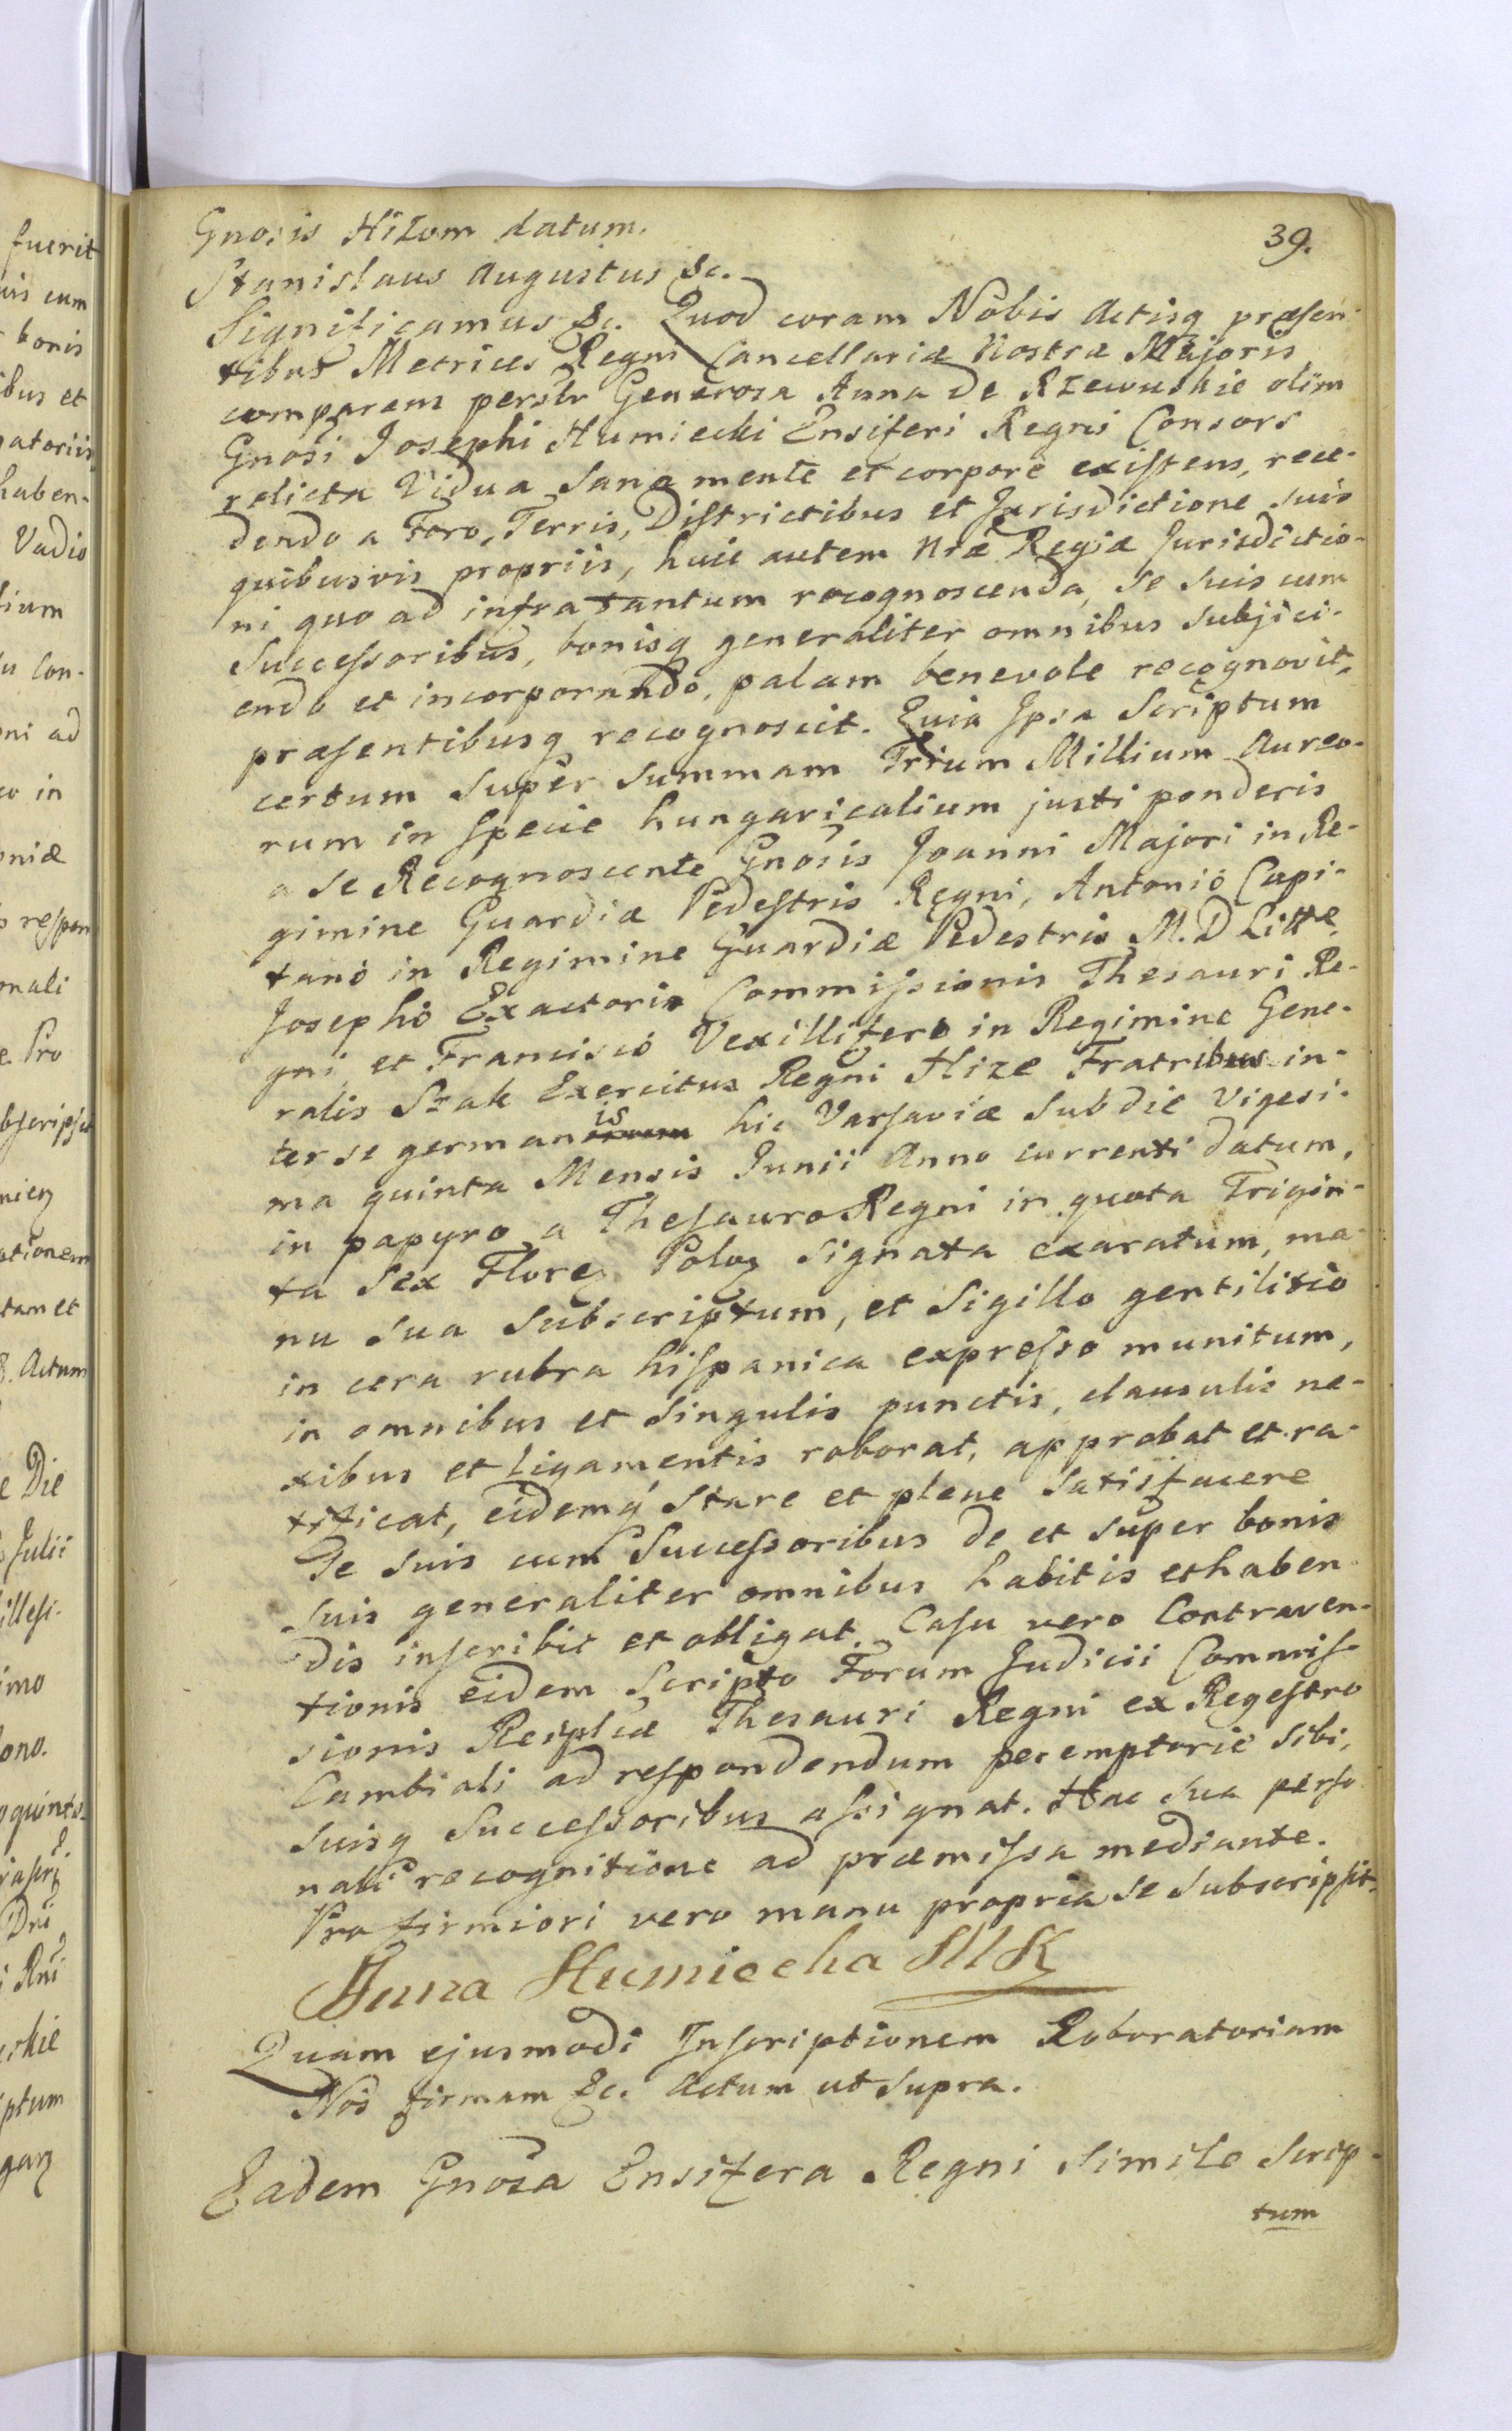 39.
Gnosis Hizom datum.
Stanislaus Augustus &c.
Significamus &c. Quod coram Nobis Actisq præsen-
tibus Metrices Regni Cancellariæ Nostræ Majoris
comparens persltr Generosa Anna de Rzewuskie olim
Gnosi Josephi Humiecki Ensiferi Regni Consors
relicta Vidua sana mente et corpore existens, rece-
dendo a Foro, Terris, Districtibus et Jurisdictione suis
quibusvis propriis, huic autem Nræ Regiæ Jurisdictio-
ni quo ad infra tantum recognoscenda, se suis cum
Successoribus, bonisq generaliter omnibus subjici-
endo et incorporando, palam benevole recognovit,
præsentibusq recognoscit. Quia Ipsa Scriptum
certum super summam Trium Millium Aureo-
rum in specie hungaricalium justi ponderis
a se Recognoscente Gnosis Joanni Majori in Re-
gimine Guardiæ Pedestris Regni, Antonio Capi-
tano in Regimine Guardiæ Pedestris M. D Litte,
Josepho Exactoris Commissionis Thesauri Re-
gni et Francisco Vexillifero in Regimine Gene-
ralis Exercitus Regni Hize Fratribus in-
ter se germanis hic Varsaviæ sub die vigesi-
ma quinta Mensis Junii Anno currenti datum,
in papyro a Thesauro Regni in quota Trigin-
ta sex Flore Polo signata exaratum, ma-
nu sua subscriptum, et sigillo gentilitio
in cera rubra hispanica expresso munitum,
in omnibus et singulis punctis, clausulis ne-
xibus et ligamentis roborat, approbat et ra-
tificat, eidemq stare et plene satisfacere
Se suis cum Successoribus de et super bonis
suis generaliter omnibus habitis et haben-
dis inscribit et obligat. Casu vero Contraven-
tionis eidem Scripto Forum Judicii Commis-
sionis Reiplcæ Thesauri Regni ex Regestro
Cambiali ad respondendum peremptorie sibi,
suisq Successoribus assignat. Hac sua perso
nali recognitione ad præmissa mediante.
Pro firmiori vero manu propria se subscripsit,
Anna Humiecka MK
Quam ejusmodi Inscriptionem Roboratoriam
Nos firmam &c. Actum ut supra.
Eadem Gnosa Ensifera Regni simile scrip-
tum
fuerit
cum
bonis
ibus et
atoriis
haben-
Vadio
Con-
oni ad
in
oniæ
respon
mali
Pro
bscripsit
ationem
tam et
Actum
Die
Julii
illesi-
imo
ono.
quinto
Dni
skie
ptum